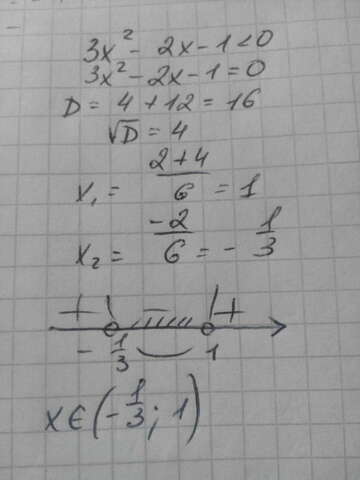 3x² - 2x - 1 < 0
3x² - 2x - 1 = 0
D = 4 + 12 = 16
√D = 4
x₁ = (2+4)/6 = 1
x₂ = -2/6 = - 1/3
+ - +
- 1/3 1
x ∈ (-1/3; 1)